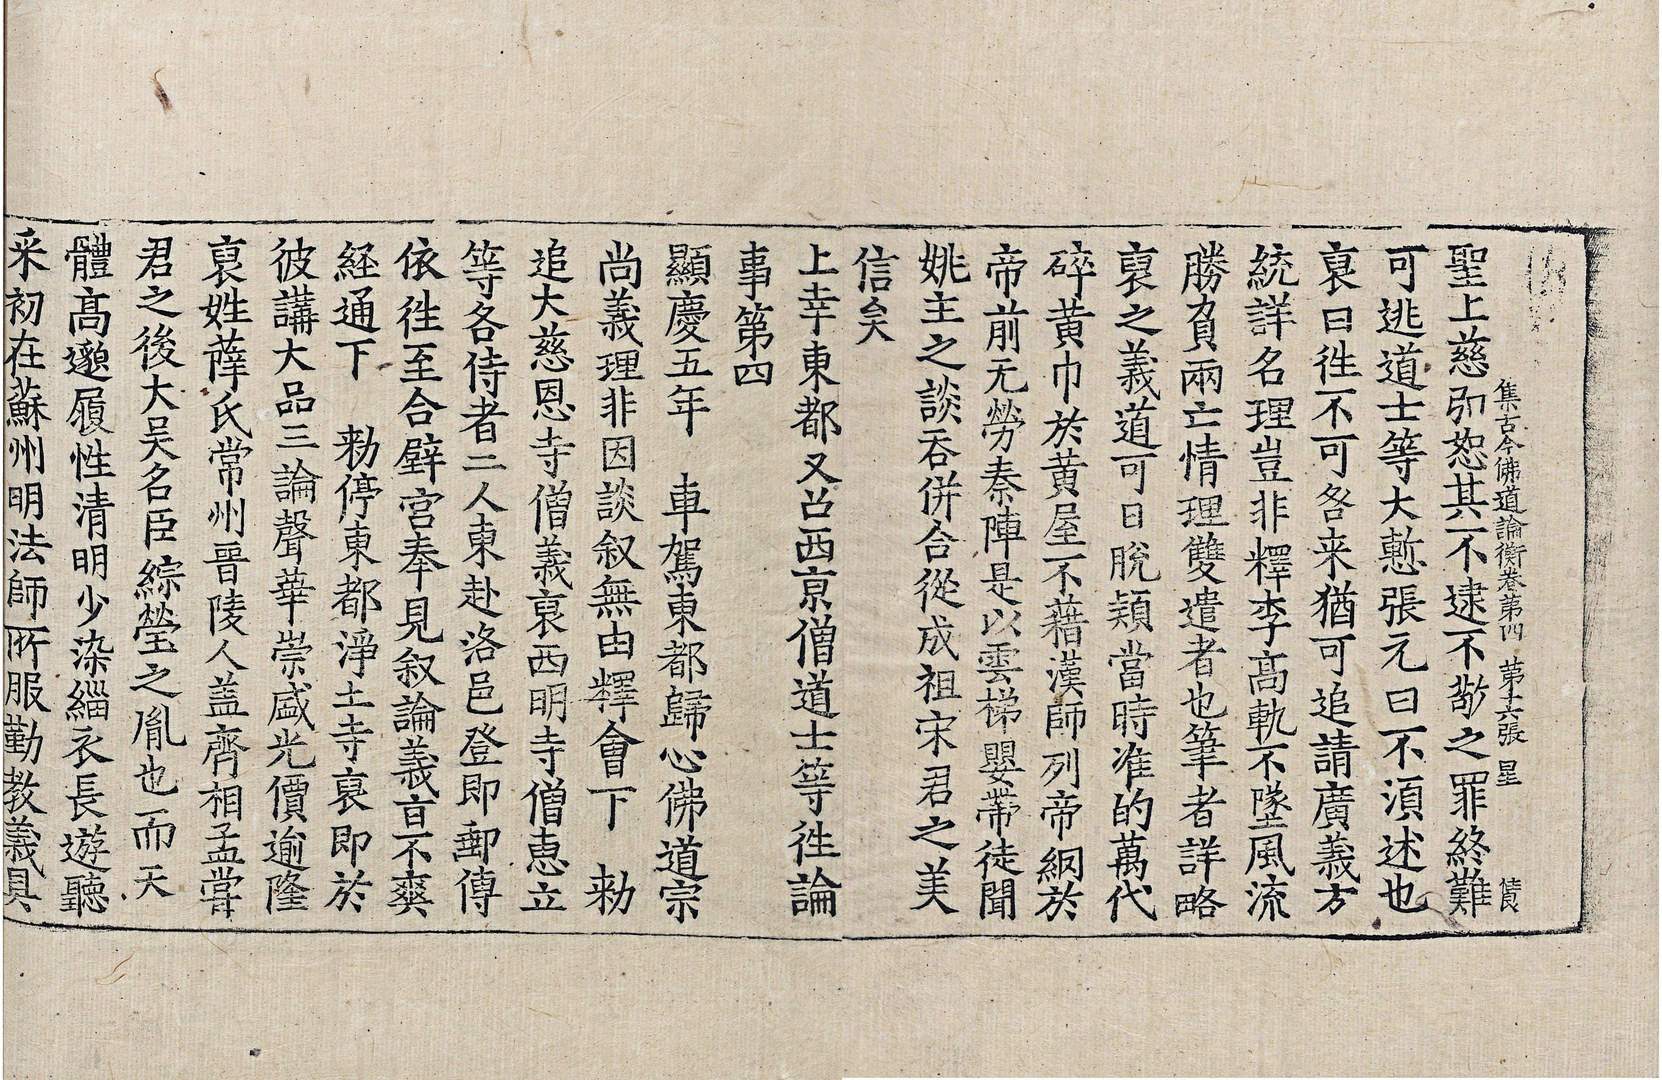 集古今佛道論衡卷第四 第十六張 星
聖上慈弘恕其不逮不敬之罪終難
可逃道士等大慙張元曰不湏述也
㐮曰徃不可咎来猶可追請廣義方
統詳名理豈非釋李髙軌不墜風流
勝負兩亡情理雙遣者也筆者詳略
㐮之義道可曰脫頴當時准的萬代
碎黄巾於黄屋不藉漢師列帝網於
帝前无勞秦陣是以雲梯嬰帶徒聞
姚主之談吞併合從成祖宋君之美
信矣
上幸東都又召西京僧道士等徃論
事第四
顯慶五年 車駕東都歸心佛道宗
尚義理非因談叙無由釋會下 勑
追大慈恩寺僧義㐮西明寺僧惠立
等各侍者二人東赴洛邑登即郵傳
依徃至合壁宫奉見叙論義㫖不爽
経通下 勑停東都淨土寺㐮即於
彼講大品三論聲華崇盛光價逾隆
㐮姓薛氏常州晋陵人盖齊相孟甞
君之後大吴名臣綜瑩之胤也而天
體髙邈履性清明少染緇衣長遊聽
采初在蘇州明法師所服勤教義具